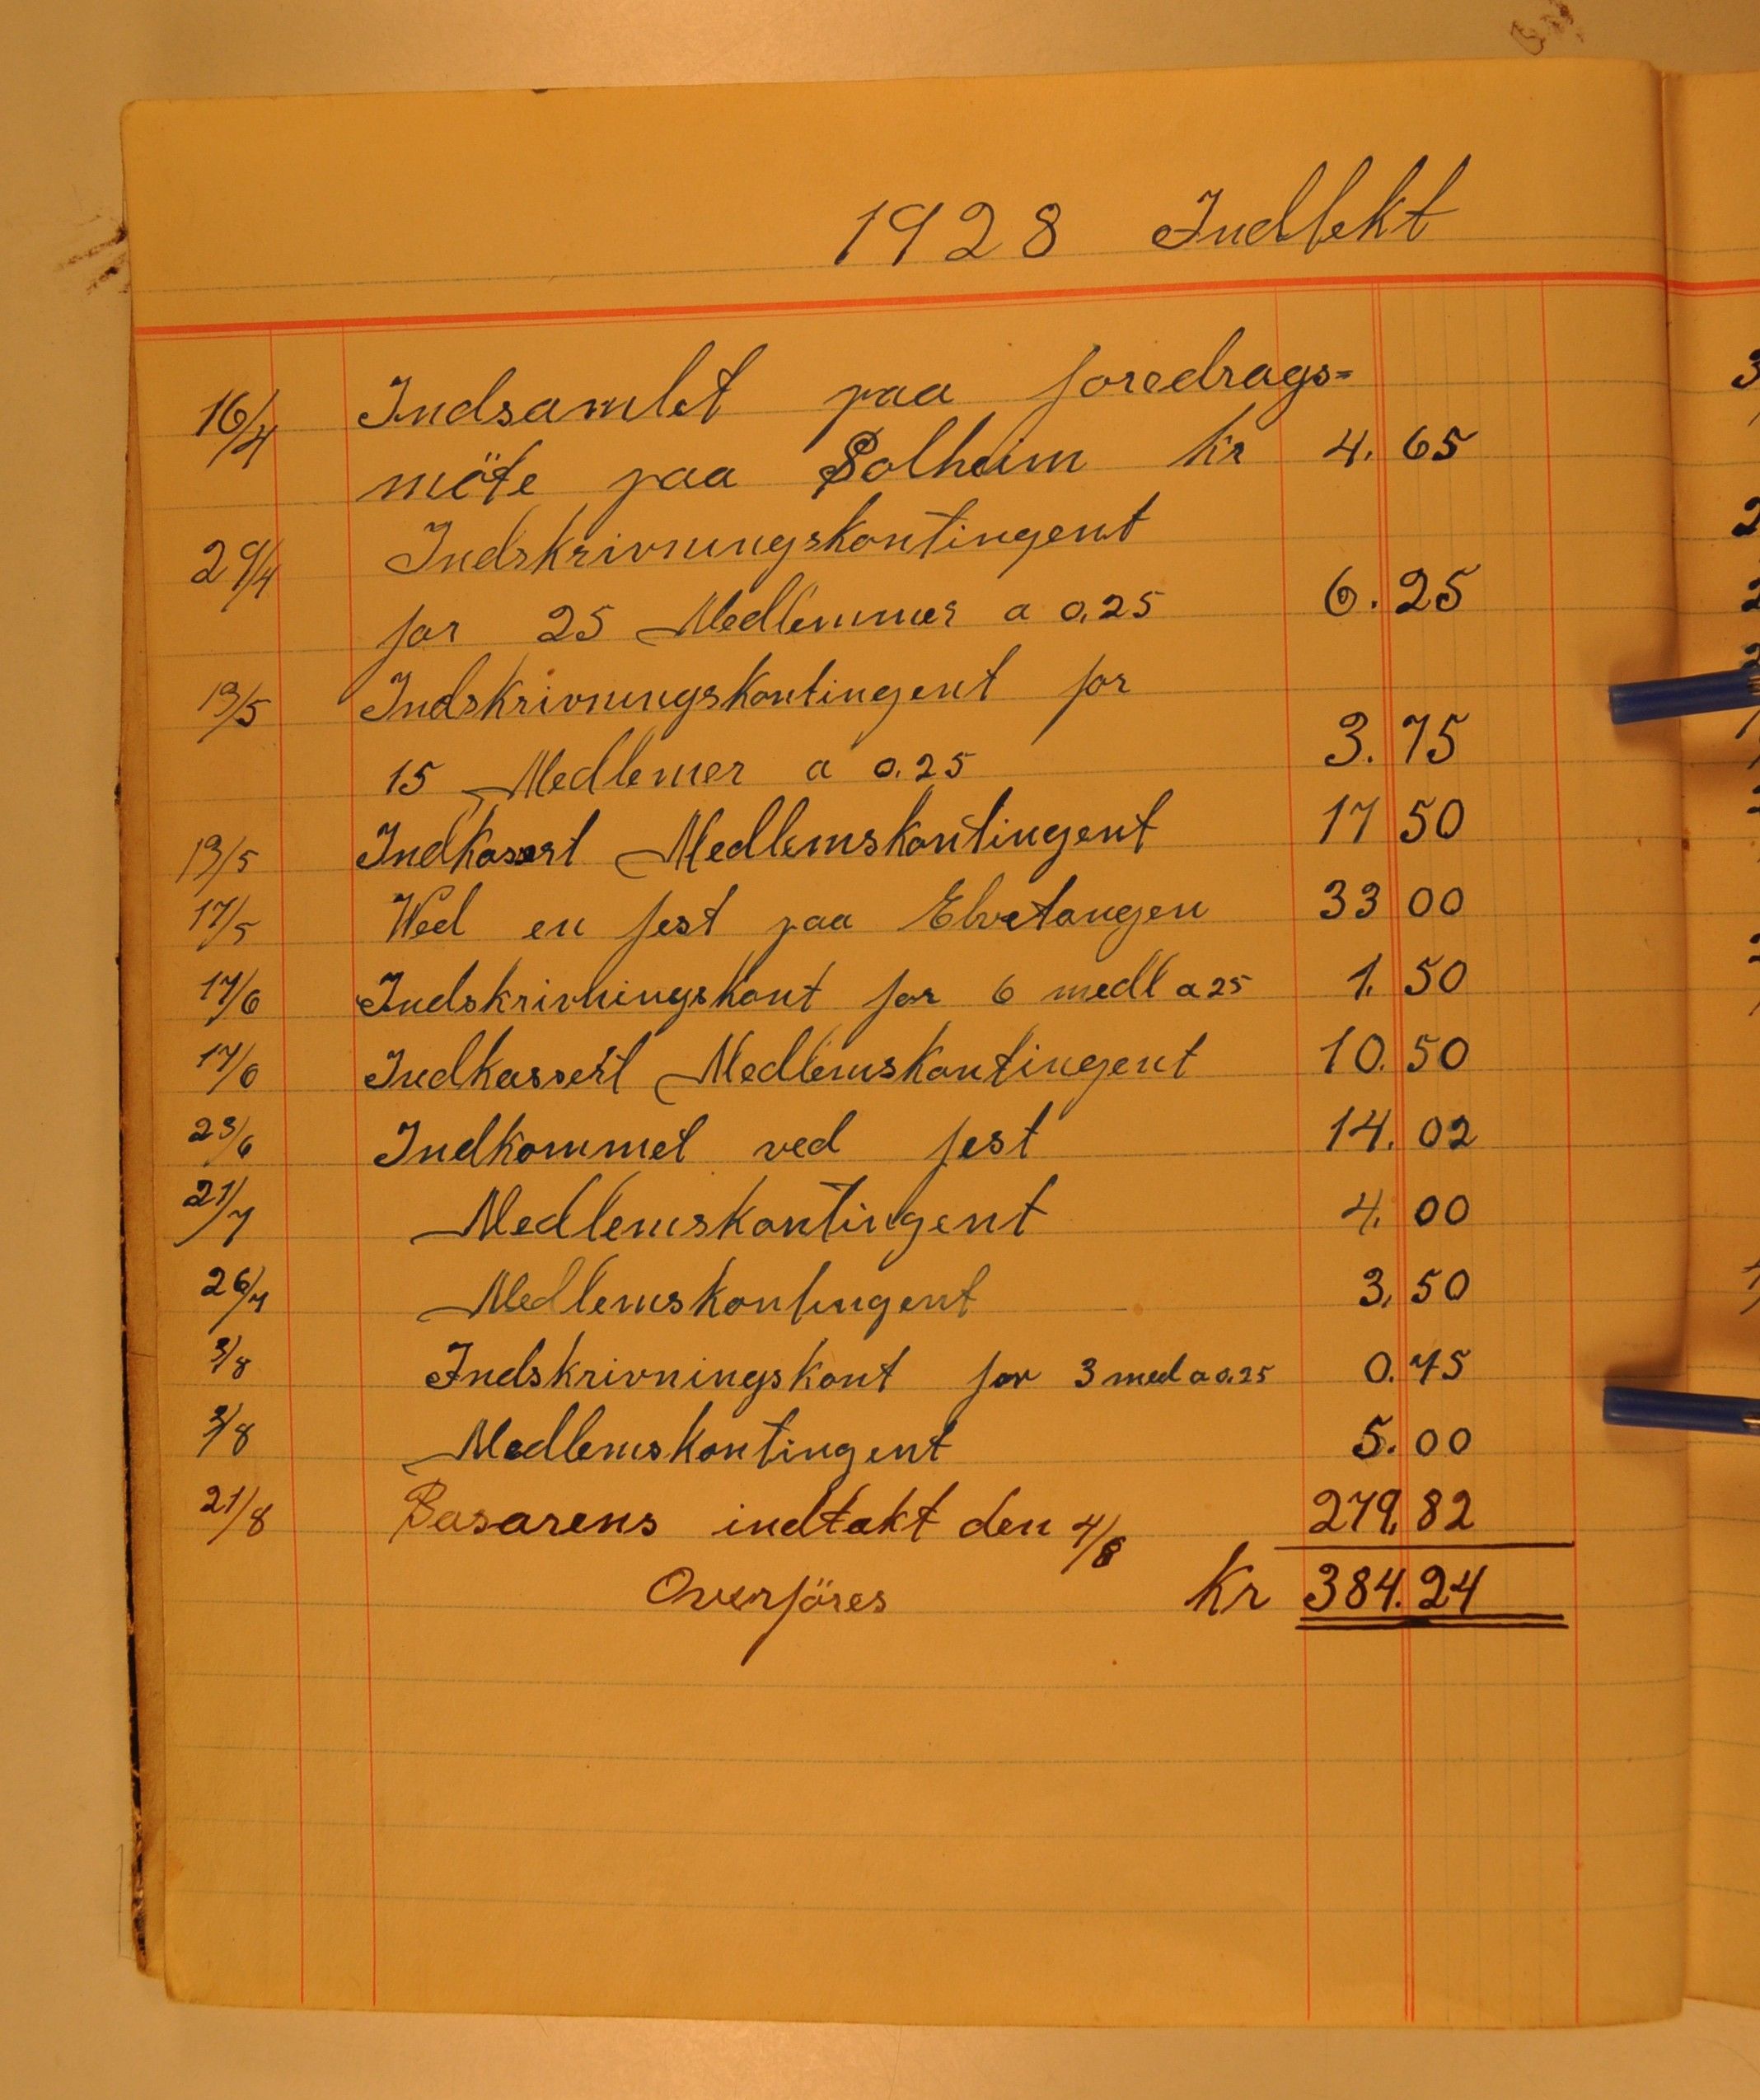 1928 Indtekt
16/4 Indsamlet paa foredrags=
möte paa Solheim kr 4.65
29/4 Indskrivningskontingent
for 25 Medlemmer a 0,25 6.25
13/5 Indskrivningskontingent for
15 Medlemer a 0.25 3.75
13/5 Indkassert Medlemskontingent 17 50
17/5 Ved en fest paa Elvetangen 33 00
17/6 Indskrivningskont for 6 medl a 25 1. 50
17/6 Indkassert Medlemskontingent 10.50
23/6 Indkommet ved fest 14.02
21/7 Medlemskontingent 4. 00
26/7 Medlemskontingent 3, 50
3/8 Indskrivningskont for 3 med a 0.25 0.75
3/8 Medlemskontingent 5.00
21/8 Basarens indtekt den 4/8 279.82
Overföres Kr 384.24